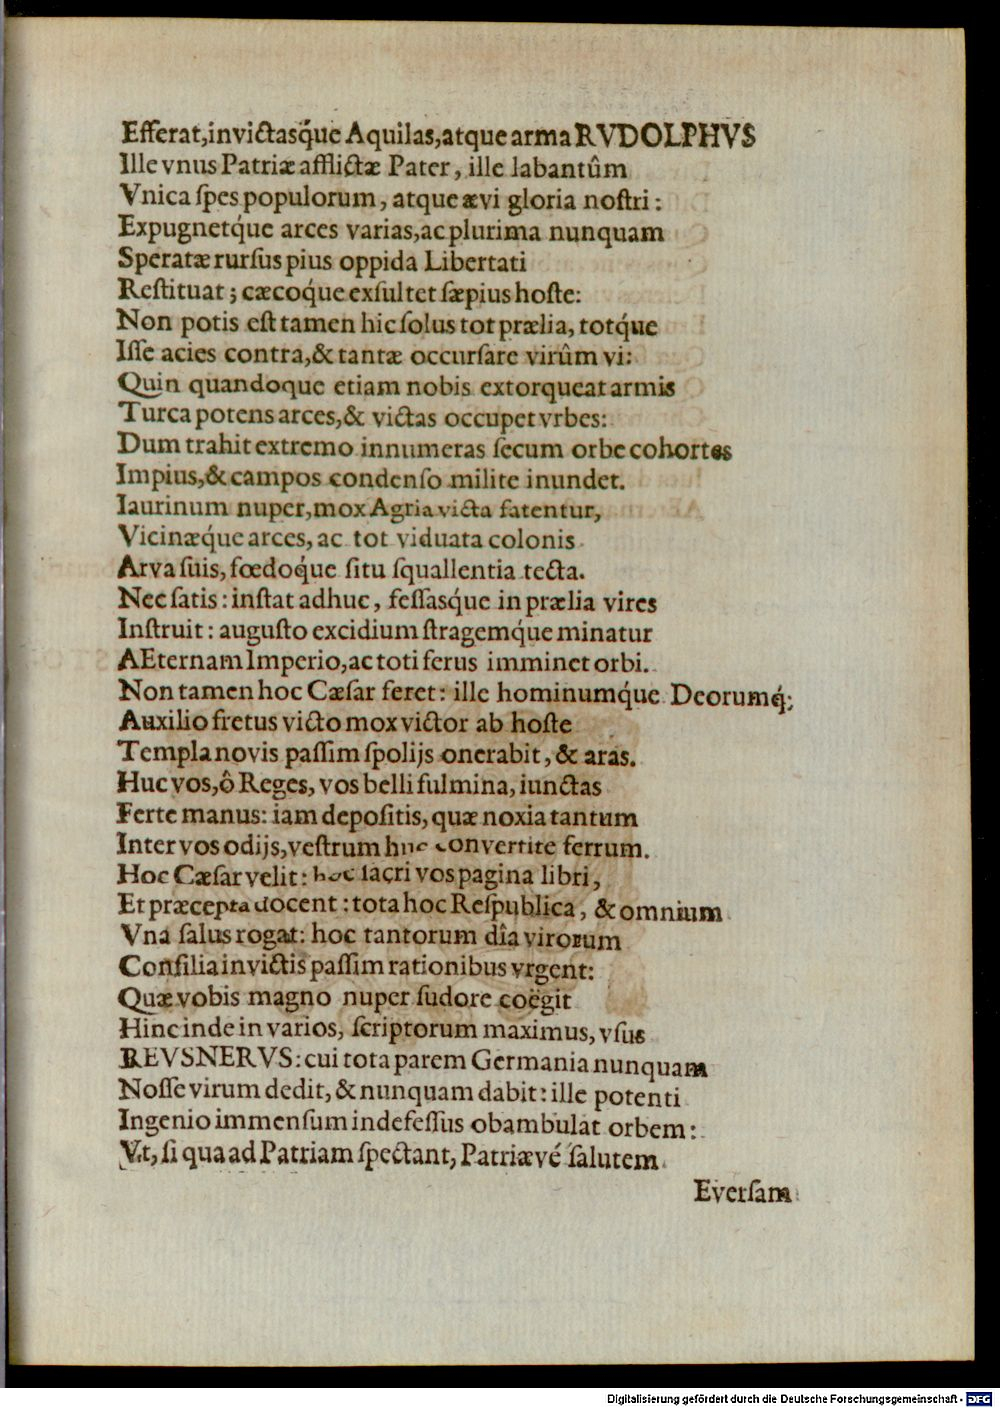 Efferat,invictasq́ue Aquilas,atque arma RVDOLPHVS
Ille vnus Patriæ afflictæ Pater, ille labantûm
Vnica ſpes populorum, atque ævi gloria noſtri:
Expugnetq́ue arces varias,ac plurima nunquam
Speratæ rurſus pius oppida Libertati
Reſtituat; cæcoq́ue exſultet ſæpius hoſte:
Non potis eſt tamen hic ſolus tot prælia, totq́ue
Iſſe acies contra,& tantæ occurſare virûm vi:
Quin quandoque etiam nobis extorqueat armis
Turca potens arces,& victas occupet vrbes:
Dum trahit extremo innumeras ſecum orbe cohortes
Impius,& campos condenſo milite inundet.
Iaurinum nuper,mox Agria victa fatentur,
Vicinæq́ue arces, ac tot viduata colonis
Arva ſuis, fœdoq́ue ſitu ſquallentia tecta.
Nec ſatis: inſtat adhuc, feſſasq́ue in prælia vires
Inſtruit: auguſto excidium ſtragemq́ue minatur
AEternam Imperio,ac toti ferus imminet orbi.
Non tamen hoc Cæſar feret: ille hominumq́ue Deorumq́;
Auxilio fretus victo mox victor ab hoſte
Templa novis paſſim ſpolijs onerabit, & aras.
Huc vos,ô Reges, vos belli fulmina, iunctas
Ferte manus: iam depoſitis, quæ noxia tantum
Inter vos odijs,veſtrum huc convertite ferrum.
Hoc Cæſar velit: hoc ſacri vos pagina libri,
Et præcepta docent: tota hoc Reſpublica, & omnium
Vna ſalus rogat: hoc tantorum dîa virorum
Conſilia invictis paſſim rationibus vrgent:
Quæ vobis magno nuper ſudore coëgit
Hinc inde in varios, ſcriptorum maximus, vſus
REVSNERVS: cui tota parem Germania nunquam
Noſſe virum dedit, & nunquam dabit: ille potenti
Ingenio immenſum indefeſſus obambulat orbem:
Vt, ſi qua ad Patriam ſpectant, Patriævé ſalutem
Everſam
Digitalisierung gefördert durch die Deutsche Forschungsgemeinschaft - DFG